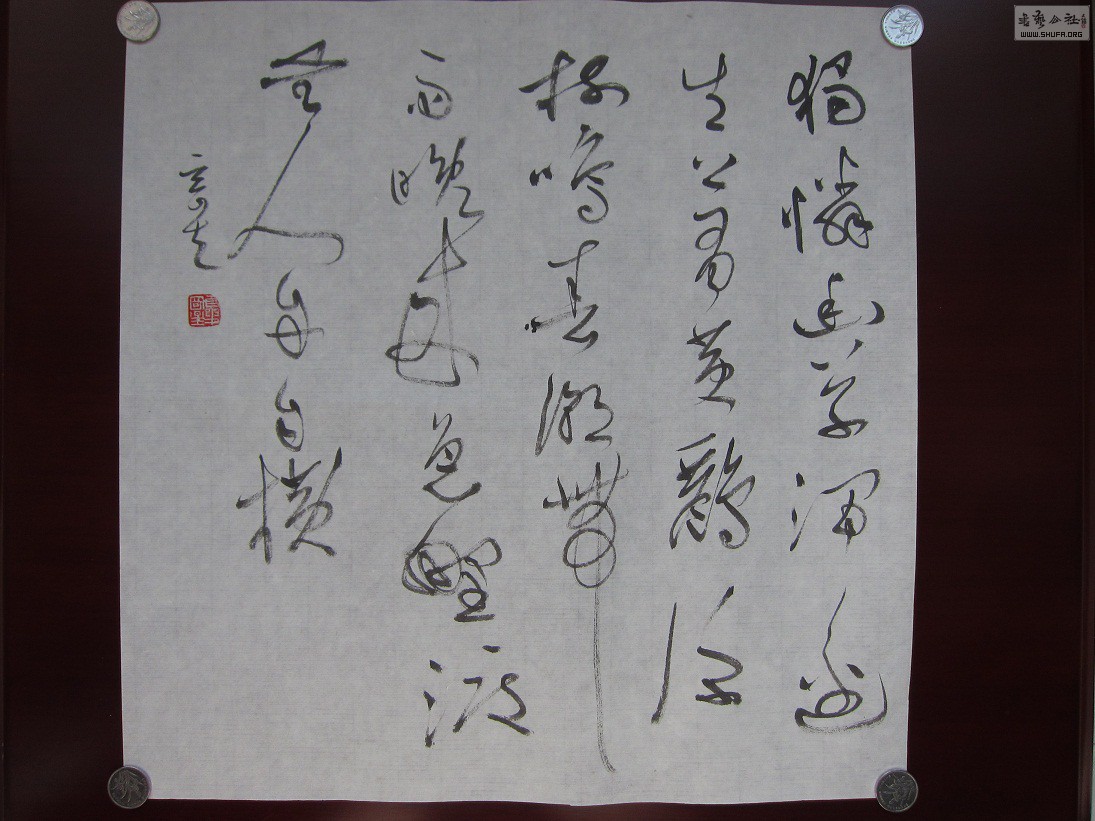 獨憐幽草澗邊
生上有黃鸝深
樹鳴春潮帶
雨晚來急野渡
無人舟自橫
書藝公社
WWW.SHUFA.ORG